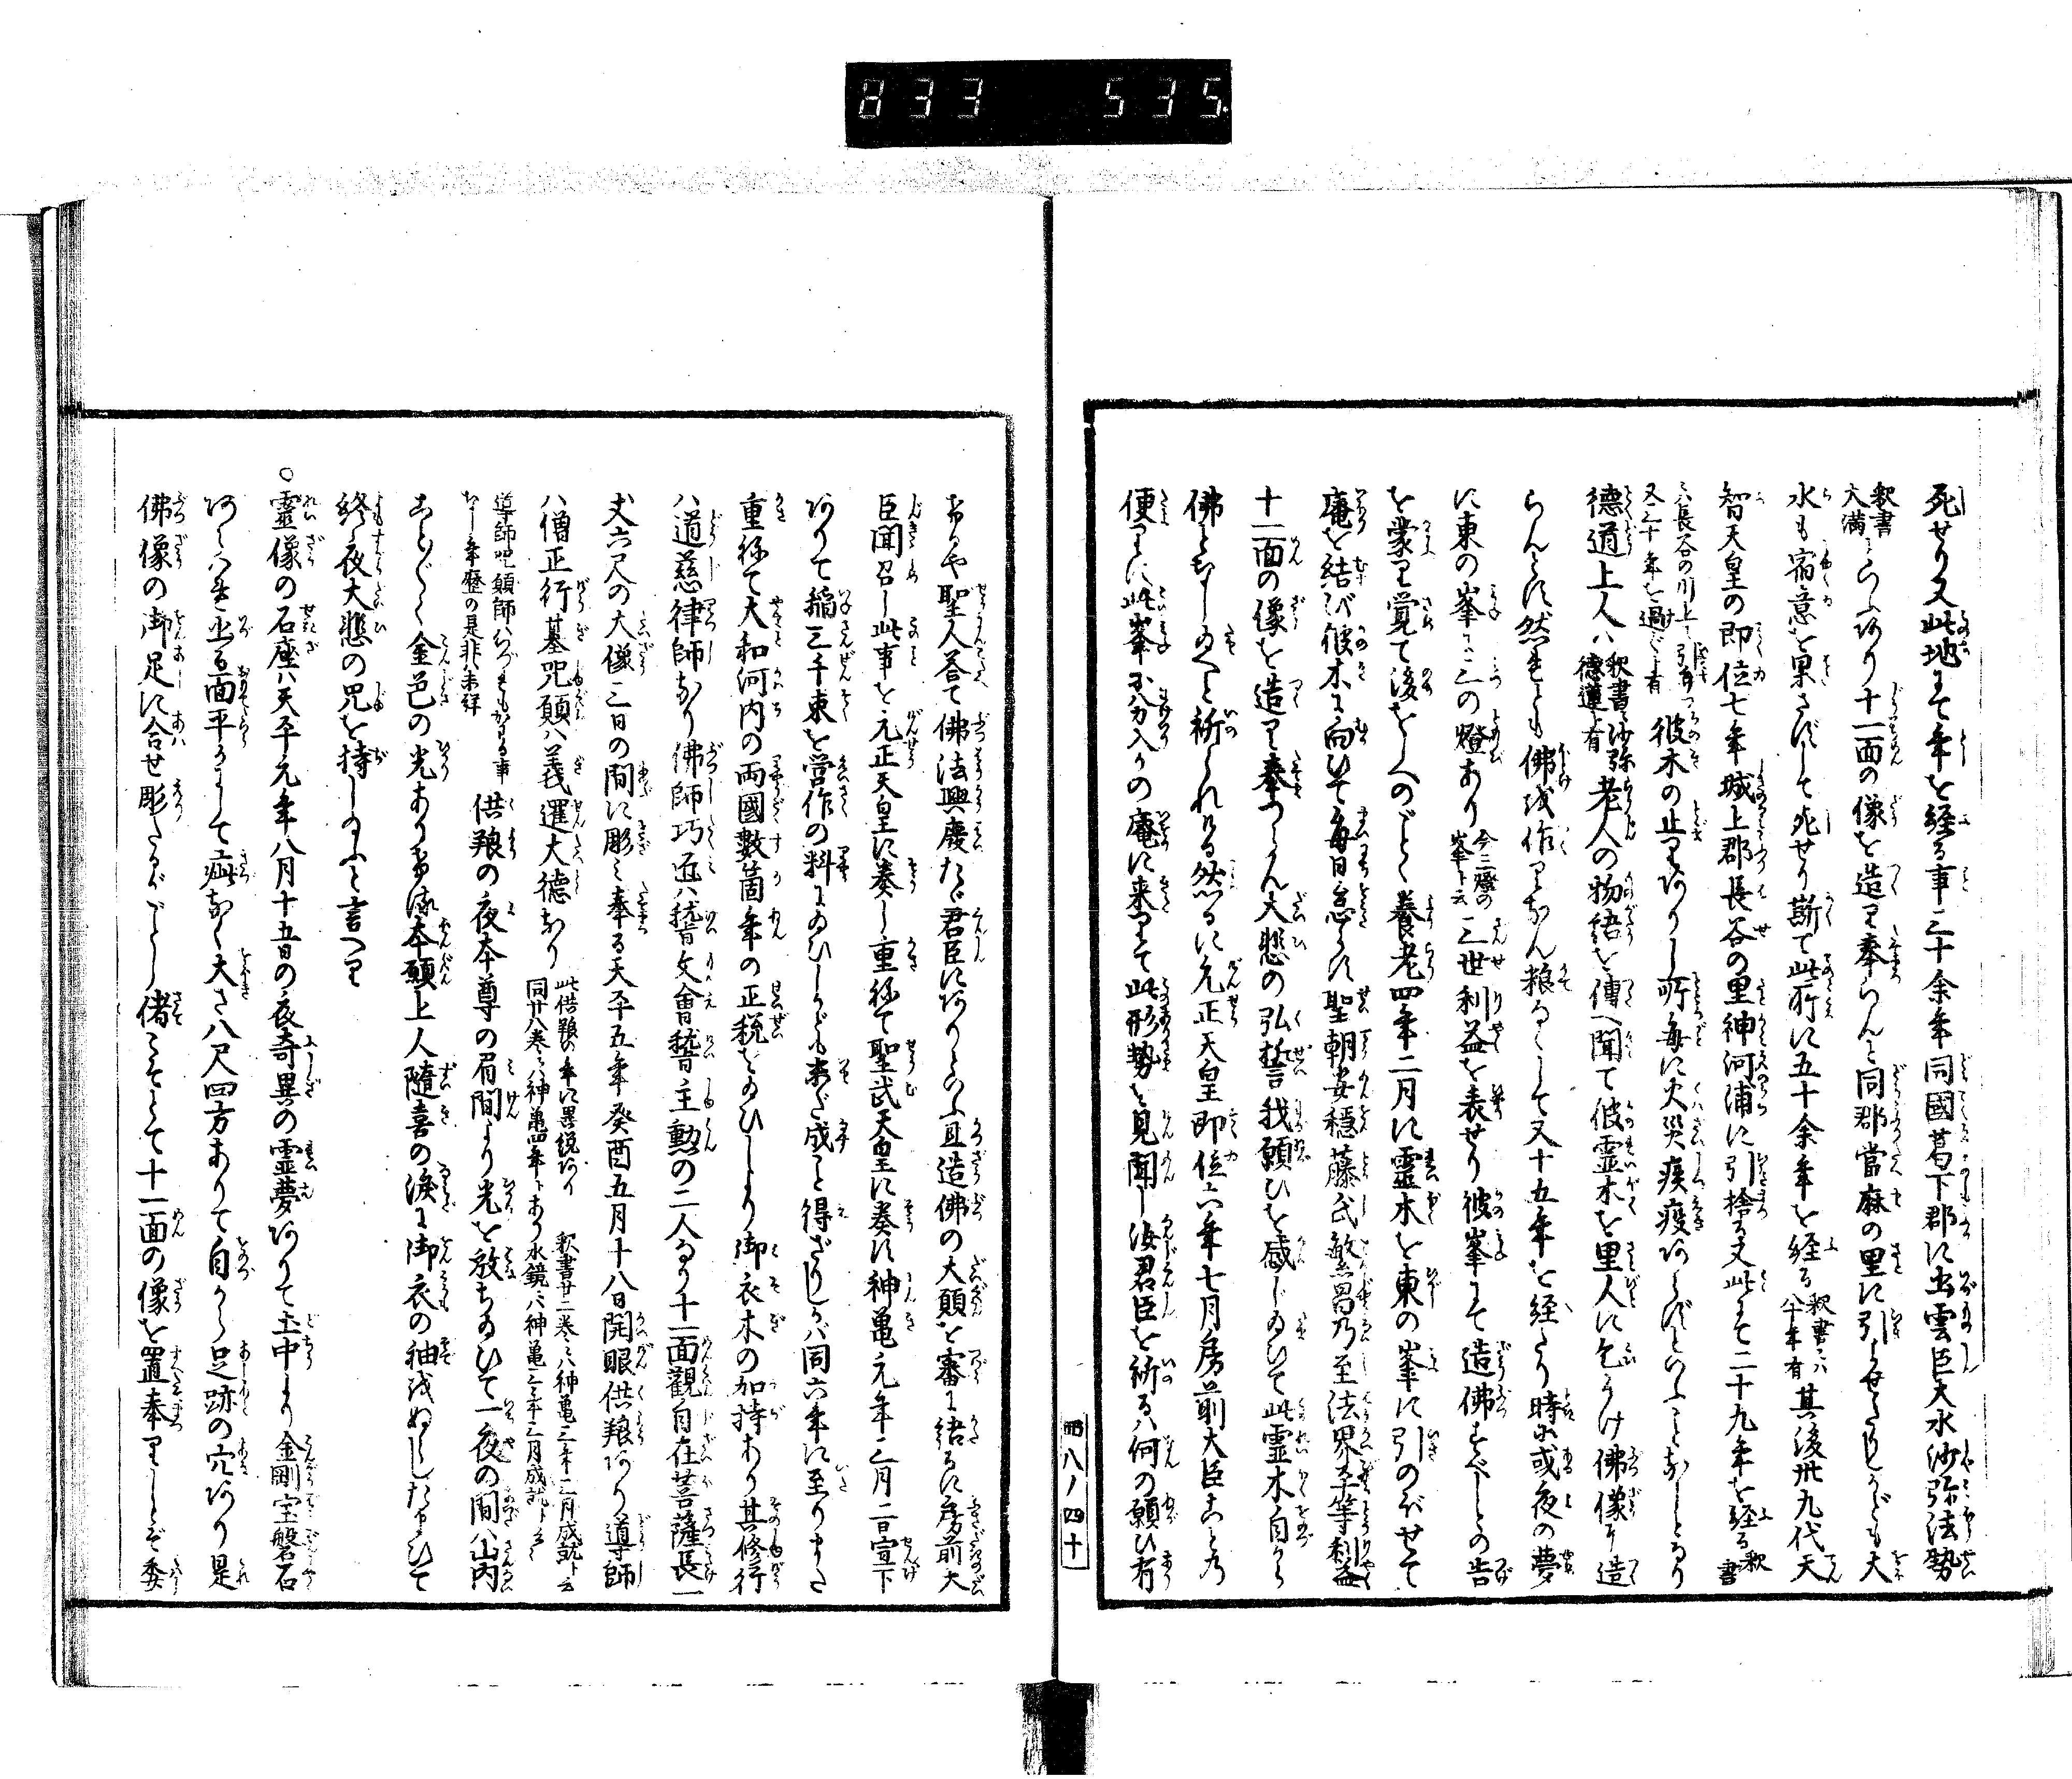 833 535
死せり又此地にて年を経る事三十余年同國葛下郡に出雲臣大水沙弥法勢
釈書大満といふあり十一面の像を造り奉らんと同郡當麻の里に引しめたりしかども大
水も宿意を果さずして死せり斯て此所に五十余年を経る釈書ニハ八十年有其後卅九代天
智天皇の即位七年城上郡長谷の里神河浦に引捨る又此にて二十九年を経る釈書
ニハ長谷の川上ニ引有又三十年を過ぐと有彼木の止りありし所毎に火災疾疫あらずといふことなしとなり
德道上人ハ釈書ニ沙弥德道と有老人の物語を傳へ聞て彼霊木を里人に乞うけ佛像を造
らんとす然れども佛を作りなん粮なくして又十五年を経たり時に或夜の夢
に東の峯に三の燈あり今三燈の峯ト云三世利益を表せり彼峯にて造佛すべしとの告
を蒙り覚て後をしへのごとく養老四年二月に霊木を東の峯に引のぼせて
庵を結び彼木に向ひて毎日怠らず聖朝安穏藤氏繁昌乃至法界平等利益
十一面の像を造り奉つらん大悲の弘誓我願ひを感じ給ひて此霊木自から
佛となし給へと祈られける然るに元正天皇即位六年七月房前大臣こと乃
便りに此峯に分入かの庵に来りて此形勢を見聞し汝君臣を祈るハ何の願ひ有
冊八ノ四十
ありや聖人答て佛法興廢たゞ君臣にありといふ且造佛の大願を審に語るに房前大
臣聞召し此事を元正天皇に奏し重ねて聖武天皇に奏す神亀元年三月二日宣下
ありて稲三千束を営作の料に給ひしかども未だ成こと得ざりしかバ同六年に至りまた
重ねて大和河内の両國數箇年の正税を給ひしより御衣木の加持あり其修行
ハ道慈律師なり佛師巧匠ハ稽文會稽主勲の二人なり十一面觀自在菩薩長二
丈六尺の大像三日の間に彫ミ奉る天平五年癸酉五月十八日開眼供養あり導師
ハ僧正行基咒願ハ義暹大德なり此供養の年に異説あり同廿八巻ニハ神亀四年トあり釈書廿二巻ニハ神亀三年三月成就ト云水鏡ニハ神亀三年三月成就ト云々
導師咒願師ハいづれもかはる事なし年歴の是非未詳供養の夜本尊の眉間より光を放ち給ひて一夜の間ハ山内
ことごとく金色の光ありければ本願上人隨喜の涙に御衣の袖をぬらしたまひて
終夜大悲の咒を持し給ふと言へり
○霊像の石座ハ天平元年八月十五日の夜奇異の霊夢ありて土中より金剛宝盤石
あらハれ出る面平らにして疵なく大さ八尺四方ありて自から足跡の穴あり是
佛像の御足に合せ彫たるがごとし偖こそとて十一面の像を置奉りしとぞ委